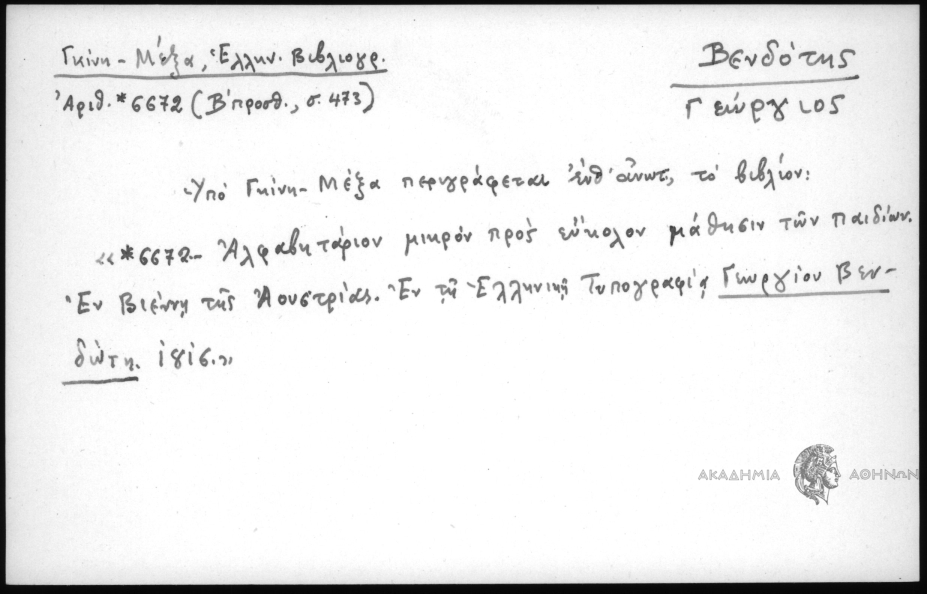 Γκίνη - Μέξα, Ἑλλην. Βιβλιογρ.
Ἀριθ. *6672 (Β΄ προσθ., σ. 473)
Βενδότης
Γεώργιος
Ὑπὸ Γκίνη - Μέξα περιγράφεται ἐνθ' ἀνωτ, τὸ βιβλίον:
«*6672.- Ἀλφαβητάριον μικρόν πρὸς εὔκολον μάθησιν τῶν παιδίων.
Ἐν Βιέννῃ τῆς Ἀουστρίας. Ἐν τῇ Ἑλληνικῇ Τυπογραφίᾳ Γεωργίου Βεν-
δώτη.
ΑΚΑΔΗΜΙΑ ΑΘΗΝΩΝ